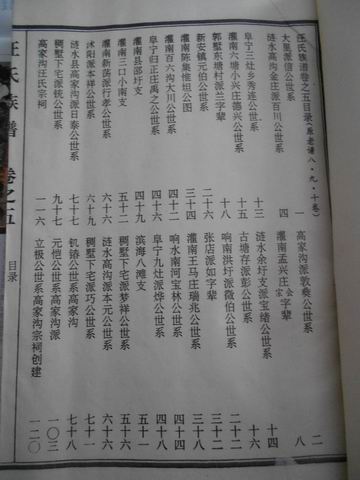 汪氏族谱卷之五目录(原老谱八·九·十卷)
大里派信公世系 一 高家沟派敦奭公世系 二
涟水高沟金庄派百川公世系 四 灌南孟兴庄会家字辈 八
阜宁三灶乡秀连公世系 十三 涟水余圩支派宝绪公世系 十四
灌南六塘小兴庄德兴公世系 古塘存派彭公世系 十六
郭墅东塘村派兰字辈 十八 响南洪圩派徵伯公世系 二十二
新安镇元伯公世系 二十六 张店派如字辈 三十二
灌南陈集惟坦公图 三十四 灌南王马庄瑞兆公世系 三十八
灌南百六沟大川公世系 四十二 响水南河宝林公世系 四十四
阜宁归正庄禹之公世系 四十四 阜宁九灶派烨公世系 四十五
灌南县邵圩支 四十九 滨海八滩支 五十一
灌南三口小南支 五十二 稠墅下宅派梦祥公世系 五十六
灌南新荡派行孝公世系 涟水高沟派本元公世系 六十六
沭阳派本祥公世系 六十九 稠墅下宅派巧公世系 七十一
涟水县高家沟派日泰公世系 七十七 公世系高家沟 七十八
稠墅下宅派铳公世系 九十七 元恺公世系高家沟派 一〇三
高家沟汪氏宗祠 一一六 立极公世系高家沟宗祠创建 一二〇
汪氏族谱 卷之五 目录